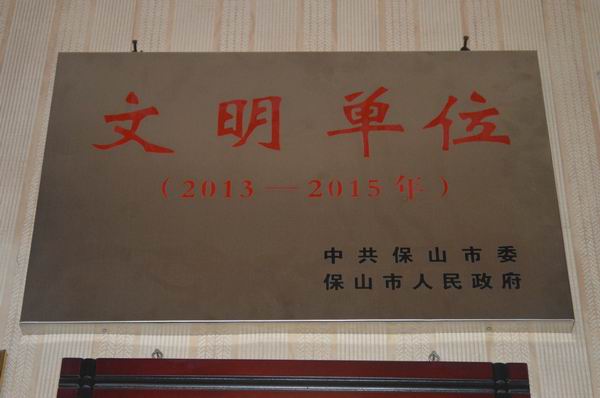 文明单位
（2013—2015年）
中共保山市委
保山市人民政府